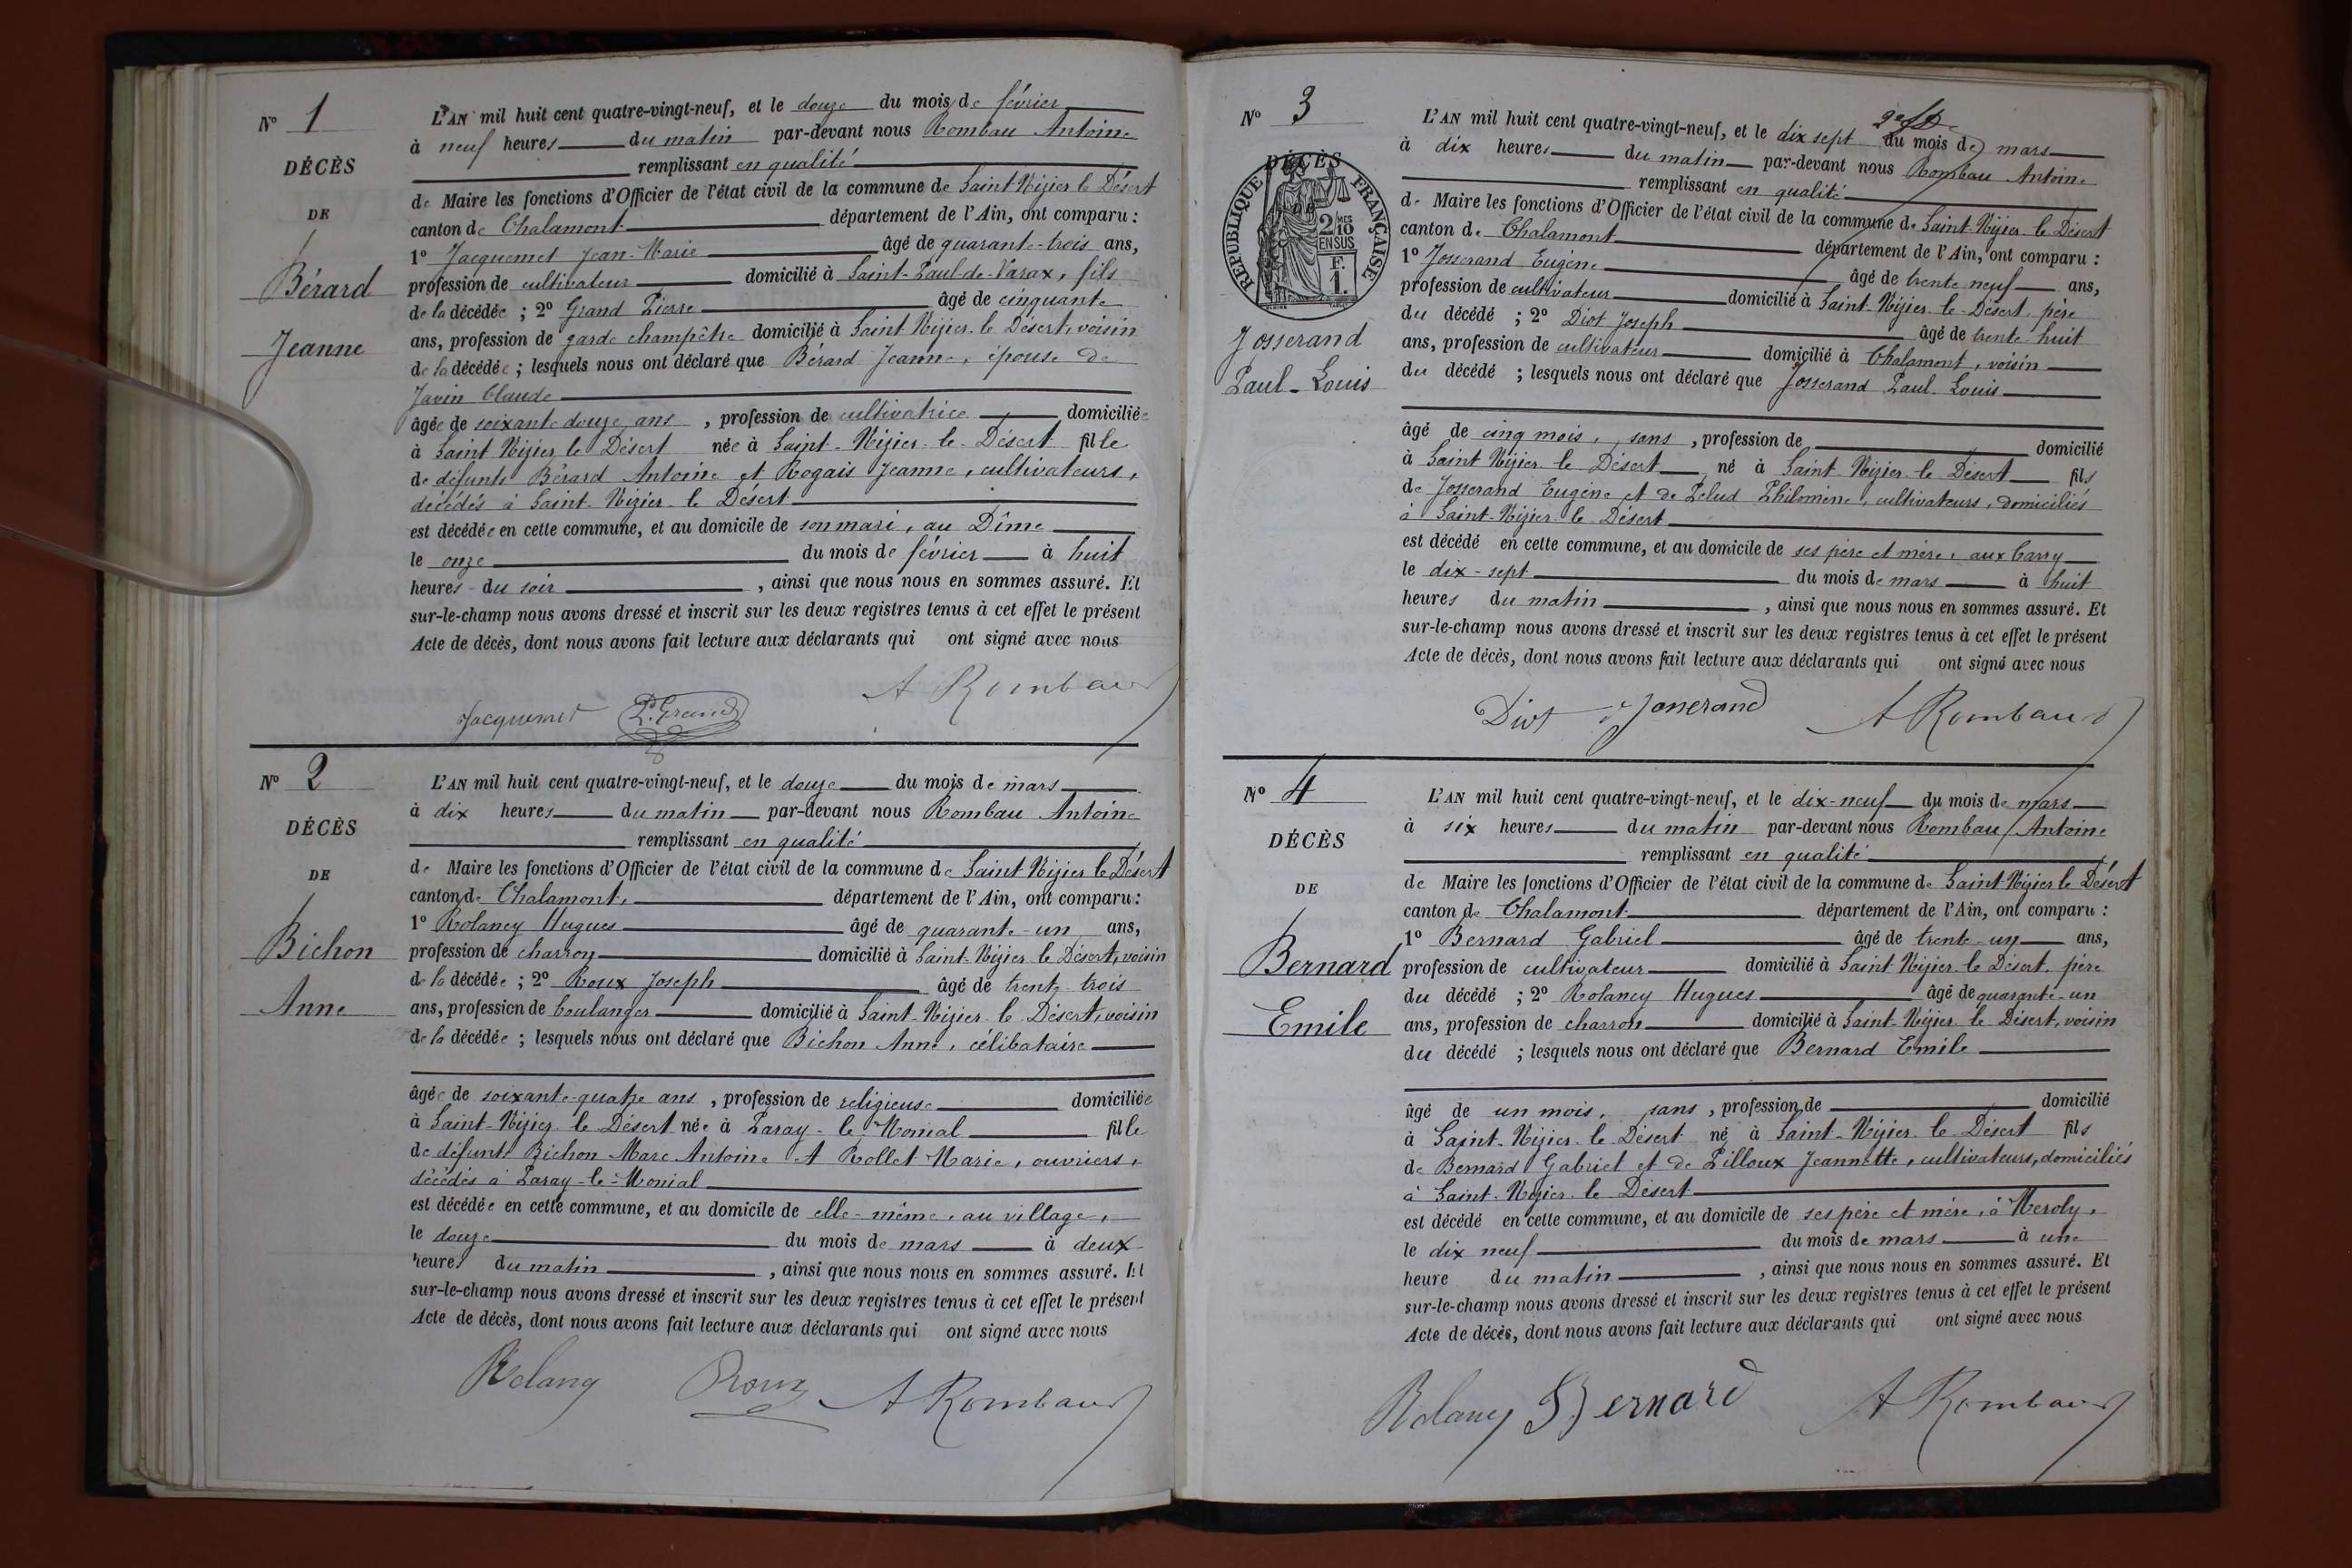 N° 1
DÉCÈS
DE
Bérard
Jeanne
L'AN mil huit cent quatre-vingt-neuf, et le douze du mois de février
à neuf heures du matin par-devant nous Rombau Antoine
remplissant en qualité
de Maire les fonctions d'Officier de l'état civil de la commune de Saint Nizier le Désert
canton de Chalamont département de l'Ain, ont comparu :
1° Jacquemet Jean-Marie âgé de quarante-trois ans,
profession de cultivateur domicilié à Saint-Paul-de-Varax, fils
de la décédée ; 2° Grand Pierre âgé de cinquante
ans, profession de garde champêtre domicilié à Saint Nizier le Désert, voisin
de la décédée ; lesquels nous ont déclaré que Bérard Jeanne, épouse de
Javin Claude
âgée de soixante douze ans , profession de cultivatrice domiciliée
à Saint Nizier le Désert née à Saint-Nizier-le-Désert fille
de défunts Bérard Antoine et Rogais Jeanne, cultivateurs,
décédés à Saint-Nizier le Désert
est décédée en cette commune, et au domicile de son mari, au Dîme
le onze du mois de février à huit
heures du soir , ainsi que nous nous en sommes assuré. Et
sur-le-champ nous avons dressé et inscrit sur les deux registres tenus à cet effet le présent
Acte de décès, dont nous avons fait lecture aux déclarants qui ont signé avec nous
A Rombaud
Jacquemet P. Grand
N° 2
DÉCÈS
DE
Bichon
Anne
L'AN mil huit cent quatre-vingt-neuf, et le douze du mois de mars
à dix heures du matin par-devant nous Rombau Antoine
remplissant en qualité
de Maire les fonctions d'Officier de l'état civil de la commune de Saint Nizier le Désert
canton de Chalamont, département de l'Ain, ont comparu :
1° Rolancy Hugues âgé de quarante-un ans,
profession de charron domicilié à Saint-Nizier le Désert, voisin
de la décédée ; 2° Roux Joseph âgé de trente-trois
ans, profession de boulanger domicilié à Saint-Nizier le Désert, voisin
de la décédée ; lesquels nous ont déclaré que Bichon Anne, célibataire
âgée de soixante-quatre ans , profession de religieuse domiciliée
à Saint-Nizier le Désert née à Paray-le-Monial fille
de défunts Bichon Marc Antoine et Rollet Marie, ouvriers,
décédés à Paray-le-Monial
est décédée en cette commune, et au domicile de elle-même, au village,
le douze du mois de mars à deux
heures du matin , ainsi que nous nous en sommes assuré. Et
sur-le-champ nous avons dressé et inscrit sur les deux registres tenus à cet effet le présent
Acte de décès, dont nous avons fait lecture aux déclarants qui ont signé avec nous
Rolancy Roux A Rombaud
N° 3
DÉCÈS
RÉPUBLIQUE FRANÇAISE
2/10 MES
EN SUS
F.
1.
Josserand
Paul-Louis
L'AN mil huit cent quatre-vingt-neuf, et le dix sept du mois de mars
à dix heures du matin par-devant nous Rombau Antoine
remplissant en qualité
de Maire les fonctions d'Officier de l'état civil de la commune de Saint-Nizier-le Désert
canton de Chalamont département de l'Ain, ont comparu :
1° Josserand Eugène âgé de trente neuf ans,
profession de cultivateur domicilié à Saint-Nizier-le-Désert, père
du décédé ; 2° Diot Joseph âgé de trente-huit
ans, profession de cultivateur domicilié à Chalamont, voisin
du décédé ; lesquels nous ont déclaré que Josserand Paul-Louis
âgé de cinq mois, sans , profession de domicilié
à Saint Nizier-le Désert né à Saint-Nizier-le Désert fils
de Josserand Eugène et de Pelud Philomène, cultivateurs, domiciliés
à Saint-Nizier le Désert
est décédé en cette commune, et au domicile de ses père et mère, aux Carry
le dix-sept du mois de mars à huit
heures du matin , ainsi que nous nous en sommes assuré. Et
sur-le-champ nous avons dressé et inscrit sur les deux registres tenus à cet effet le présent
Acte de décès, dont nous avons fait lecture aux déclarants qui ont signé avec nous
Diot Josserand A Rombaud
N° 4
DÉCÈS
DE
Bernard
Emile
L'AN mil huit cent quatre-vingt-neuf, et le dix-neuf du mois de mars
à six heures du matin par-devant nous Rombau Antoine
remplissant en qualité
de Maire les fonctions d'Officier de l'état civil de la commune de Saint-Nizier le Désert
canton de Chalamont département de l'Ain, ont comparu :
1° Bernard Gabriel âgé de trente-un ans,
profession de cultivateur domicilié à Saint-Nizier-le Désert, père
du décédé ; 2° Rolancy Hugues âgé de quarante-un
ans, profession de charron domicilié à Saint-Nizier le Désert, voisin
du décédé ; lesquels nous ont déclaré que Bernard Emile
âgé de un mois, sans , profession de domicilié
à Saint-Nizier le Désert né à Saint-Nizier le Désert fils
de Bernard Gabriel et de Pilloux Jeannette, cultivateurs, domiciliés
à Saint-Nizier le Désert
est décédé en cette commune, et au domicile de ses père et mère, à Meroly,
le dix neuf du mois de mars à une
heure du matin , ainsi que nous nous en sommes assuré. Et
sur-le-champ nous avons dressé et inscrit sur les deux registres tenus à cet effet le présent
Acte de décès, dont nous avons fait lecture aux déclarants qui ont signé avec nous
Rolancy Bernard A Rombaud